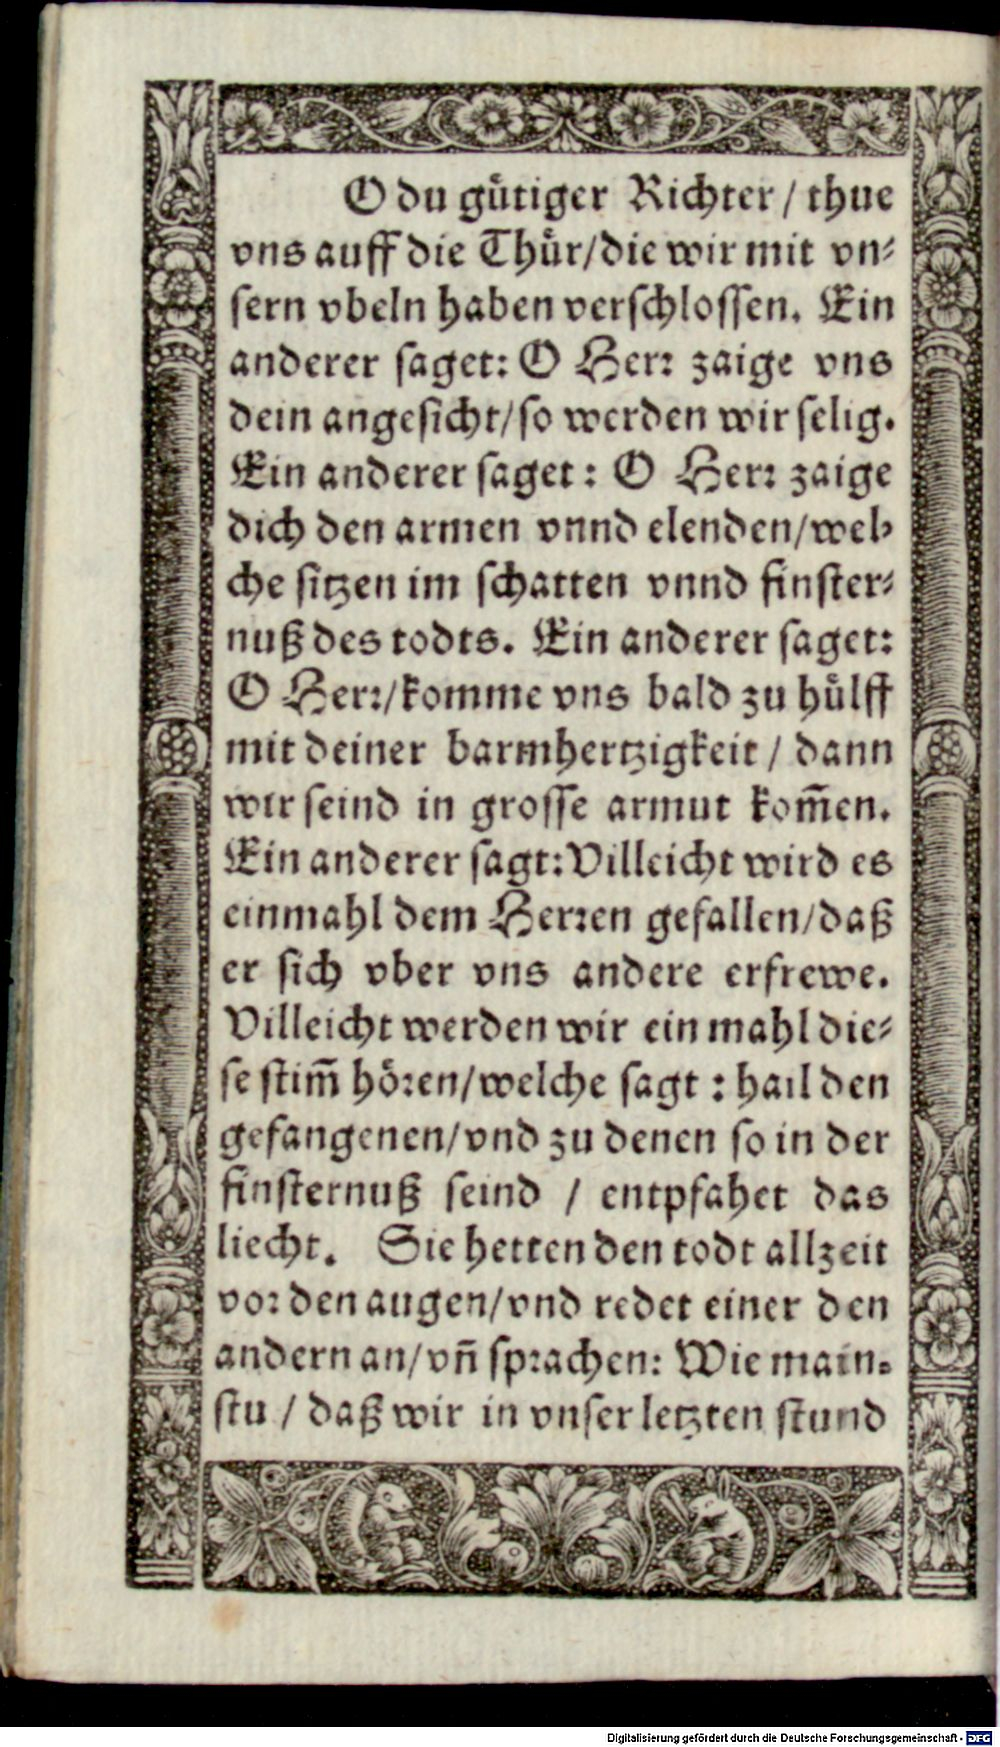 O du gütiger Richter / thue
vns auff die Thür/die wir mit vn⸗
sern vbeln haben verschlossen. Ein
anderer saget: O Herr zaige vns
dein angesicht/so werden wir selig.
Ein anderer saget: O Herr zaige
dich den armen vnnd elenden/wel⸗
che sitzen im schatten vnnd finster⸗
nuß des todts. Ein anderer saget:
O Herr/komme vns bald zu hülff
mit deiner barmhertzigkeit / dann
wir seind in grosse armut kom̃en.
Ein anderer sagt: Villeicht wird es
einmahl dem Herren gefallen/daß
er sich vber vns andere erfrewe.
Villeicht werden wir ein mahl die⸗
se stim̃ hören/welche sagt : hail den
gefangenen/vnd zu denen so in der
finsternuß seind / entpfahet das
liecht. Sie hetten den todt allzeit
vor den augen/vnd redet einer den
andern an/vñ sprachen: Wie main⸗
stu / daß wir in vnser letzten stund
Digitalisierung gefördert durch die Deutsche Forschungsgemeinschaft - DFG